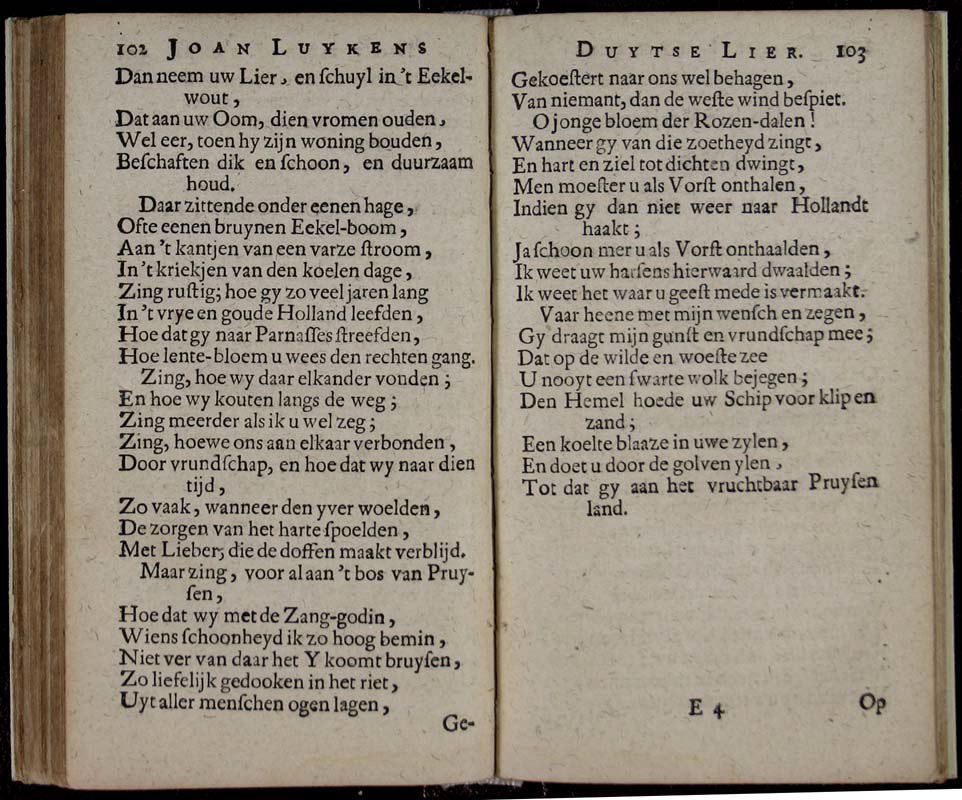 102 JOAN LUYKENS
Dan neem uw Lier, en ſchuyl in 't Eekel-
wout,
Dat aan uw Oom, dien vromen ouden,
Wel eer, toen hy zijn woning bouden,
Beſchaften dik en ſchoon, en duurzaam
houd.
Daar zittende onder eenen hage,
Ofte eenen bruynen Eekel-boom,
Aan 't kantjen van een varze ſtroom,
In 't kriekjen van den koelen dage,
Zing ruſtig; hoe gy zo veel jaren lang
In 't vrye en goude Holland leefden,
Hoe dat gy naar Parnaſſes ſtreefden,
Hoe lente-bloem u wees den rechten gang.
Zing, hoe wy daar elkander vonden;
En hoe wy kouten langs de weg;
Zing meerder als ik u wel zeg;
Zing, hoe we ons aan elkaar verbonden,
Door vrundſchap, en hoe dat wy naar dien
tijd,
Zo vaak, wanneer den yver woelden,
De zorgen van het harte ſpoelden,
Met Lieber, die de doffen maakt verblijd.
Maar zing, voor al aan 't bos van Pruy-
ſen,
Hoe dat wy met de Zang-godin,
Wiens ſchoonheyd ik zo hoog bemin,
Niet ver van daar het Y koomt bruyſen,
Zo liefelijk gedooken in het riet,
Uyt aller menſchen ogen lagen,
Ge-
DUYTSE LIER. 103
Gekoeſtert naar ons wel behagen,
Van niemant, dan de weſte wind beſpiet.
O jonge bloem der Rozen-dalen!
Wanneer gy van die zoetheyd zingt,
En hart en ziel tot dichten dwingt,
Men moeſter u als Vorſt onthalen,
Indien gy dan niet weer naar Hollandt
haakt;
Ja ſchoon mer u als Vorſt onthaalden,
Ik weet uw harſens hierwaard dwaalden;
Ik weet het waar u geeſt mede is vermaakt.
Vaar heene met mijn wenſch en zegen,
Gy draagt mijn gunſt en vrundſchap mee;
Dat op de wilde en woeſte zee
U nooyt een ſwarte wolk bejegen;
Den Hemel hoede uw Schip voor klip en
zand;
Een koelte blaaze in uwe zylen,
En doet u door de golven ylen,
Tot dat gy aan het vruchtbaar Pruyſen
land.
E 4 Op